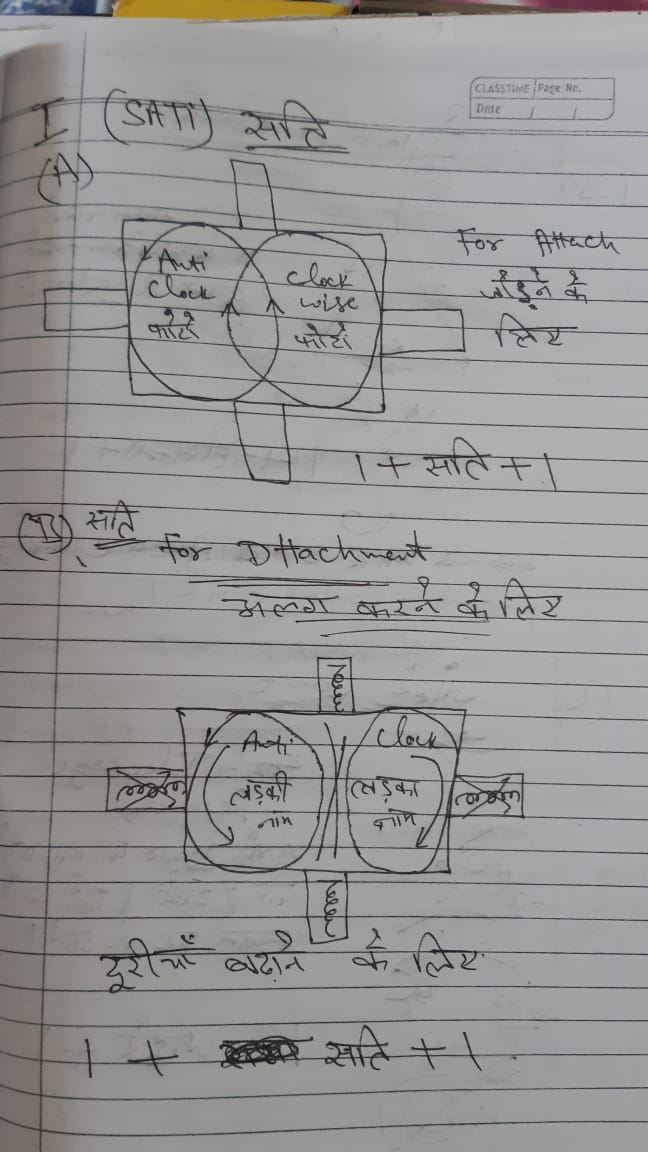 CLASSTIME Page No.
Date / /
I (SATi) सति
(A)
For Attach
जोड़ने के
लिए
Anti
Clock
फोटो
Clock
wise
फोटो
1 + सति + 1
(B) सति for Dttachment
अलग करने के लिए
Anti
लड़की
नाम
Clock
लड़का
नाम
दूरीयाँ बढ़ाने के लिए
1 + सति + 1